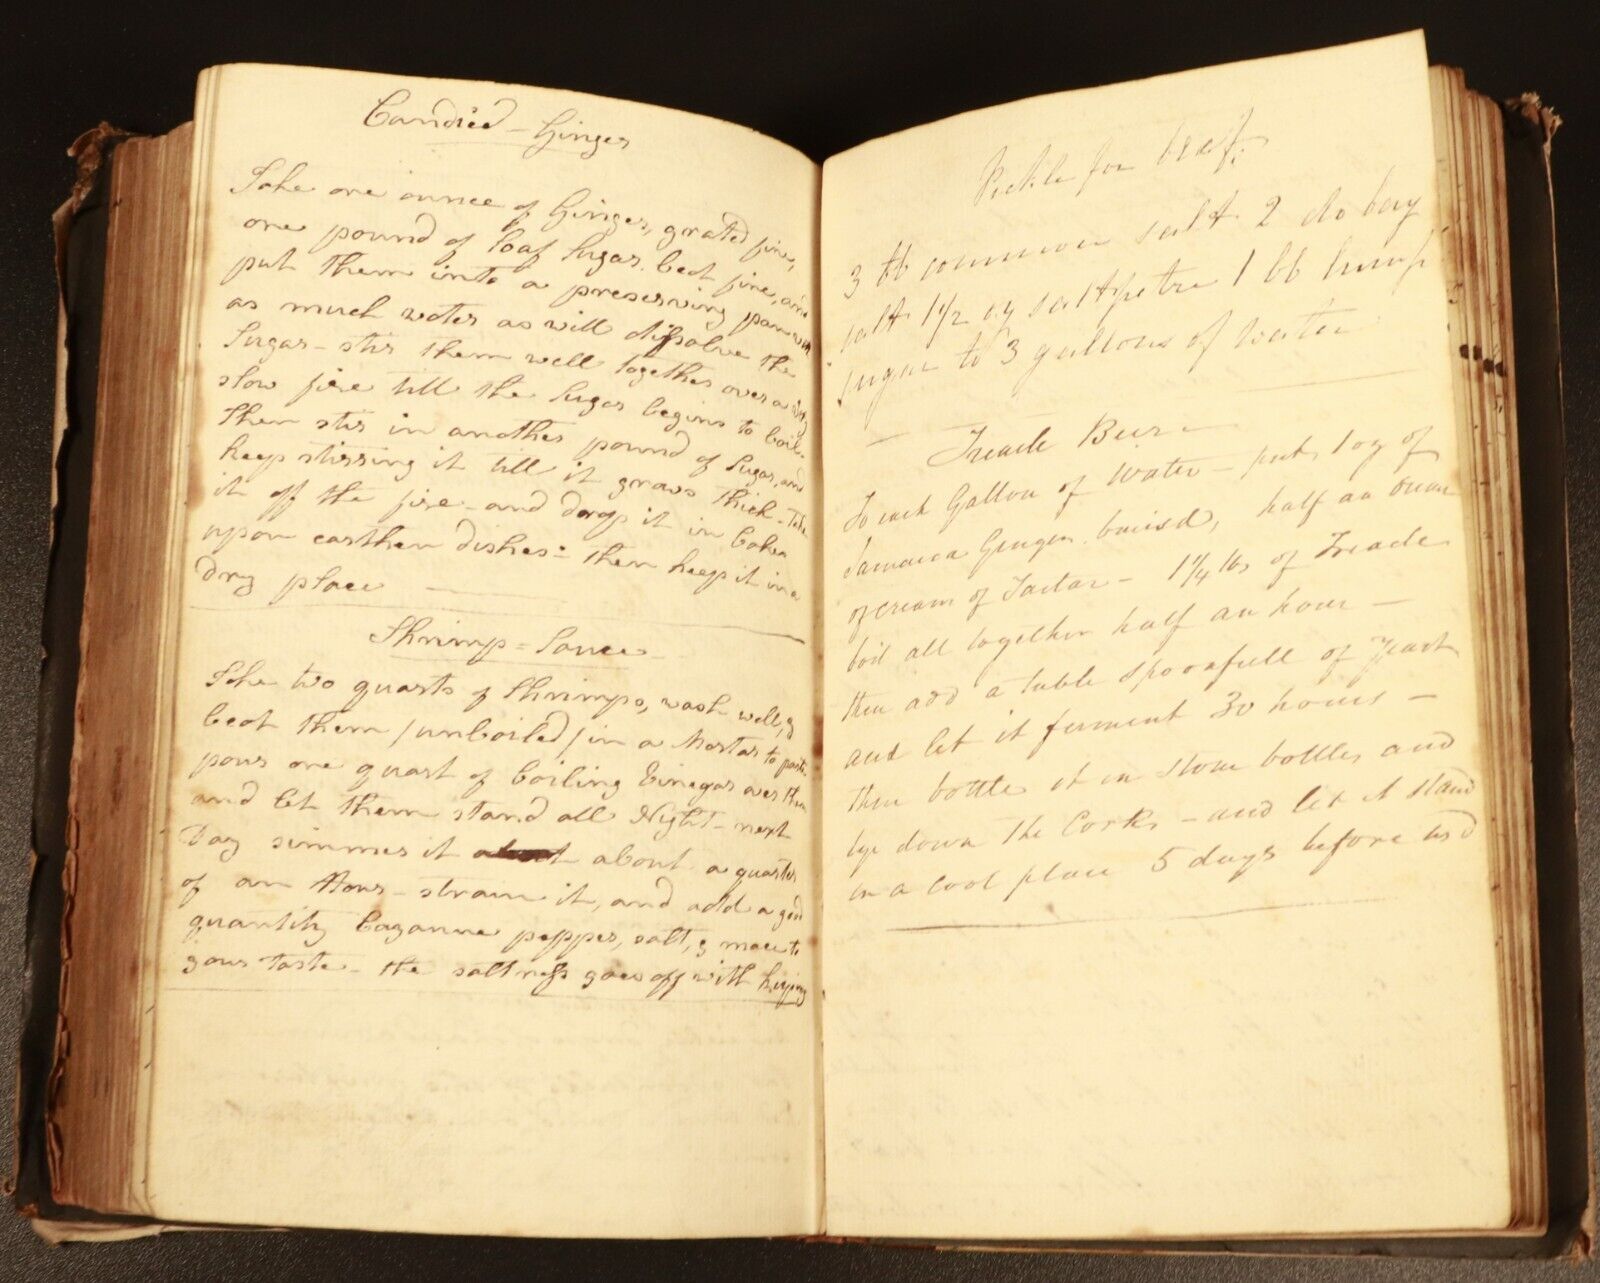 Candied - Ginger
Take one ounce of Ginger, grated fine,
one pound of loaf Sugar beat fine, and
put them into a preserving pan with
as much water as will dissolve the
Sugar - stir them well together over a very
slow fire till the Sugar begins to boil.
then stir in another pound of Sugar, and
keep stirring it till it grows thick - Take
it off the fire - and drop it in Cakes
upon earthen dishes: - then keep it in a
dry place
Shrimp = Sauce
Take two quarts of Shrimps, wash well, &
beat them /unboiled/ in a Mortar to paste
pour one quart of boiling Vinegar over them
and let them stand all Night - next
Day simmer it about a quarter
of an Hour - strain it, and add a good
quantity Cayanne pepper, salt, & mace to
your taste - the saltness goes off with keeping
Pickle for beaf:
3 lb common salt 2 do bay
salt 1 1/2 oz saltpetre 1 lb lump
sugar to 3 gallons of water
- Treacle Beer -
To each Gallon of Water put 1 oz of
Jamaica Ginger bruisd, half an ounce
of cream of Tartar - 1 1/4 lbs of Treacle
boil all together half an hour -
then add a table spoonfull of Yeast
and let it ferment 30 hours -
then bottle it in stone bottles and
tye down the Corks - and let it stand
in a cool place 5 days before us'd